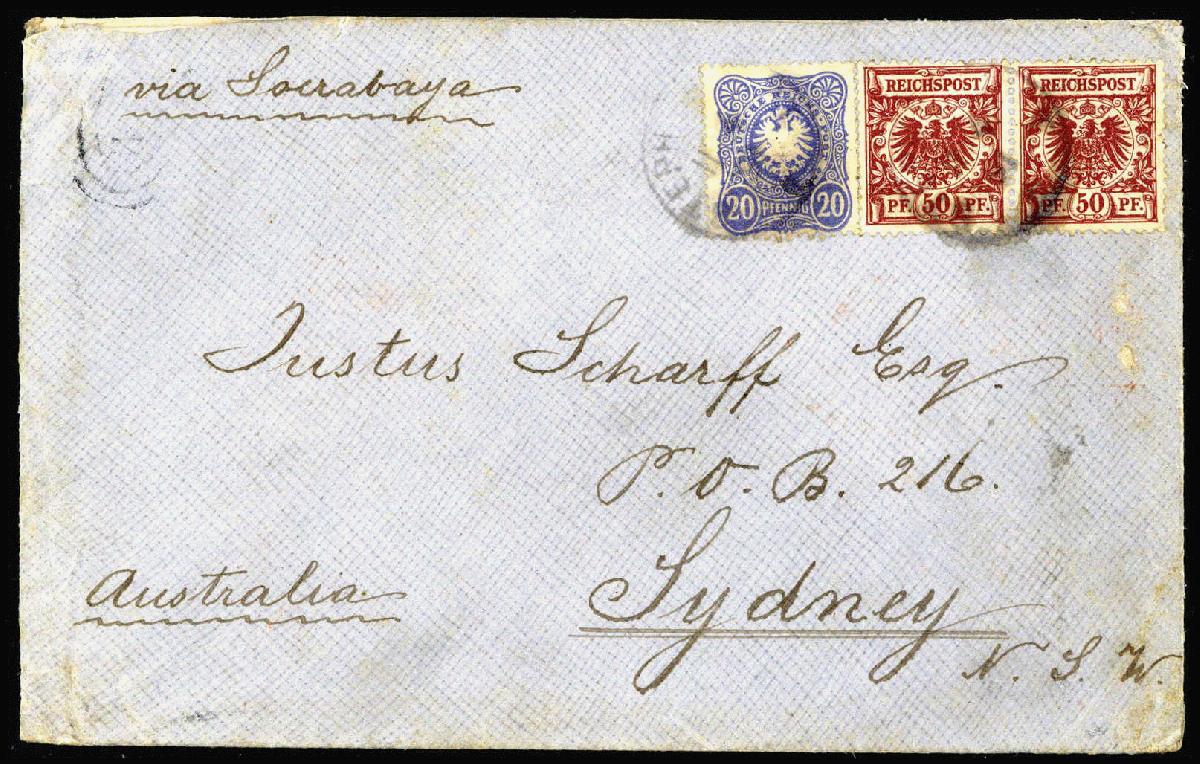 via Soerabaya
DEUTSCHE REICHS-POST
20 PFENNIG 20
REICHSPOST
PF. 50 PF.
REICHSPOST
PF. 50 PF.
Justus Scharff Esq.
P. O. B. 216.
Sydney
Australia
N. S. W.